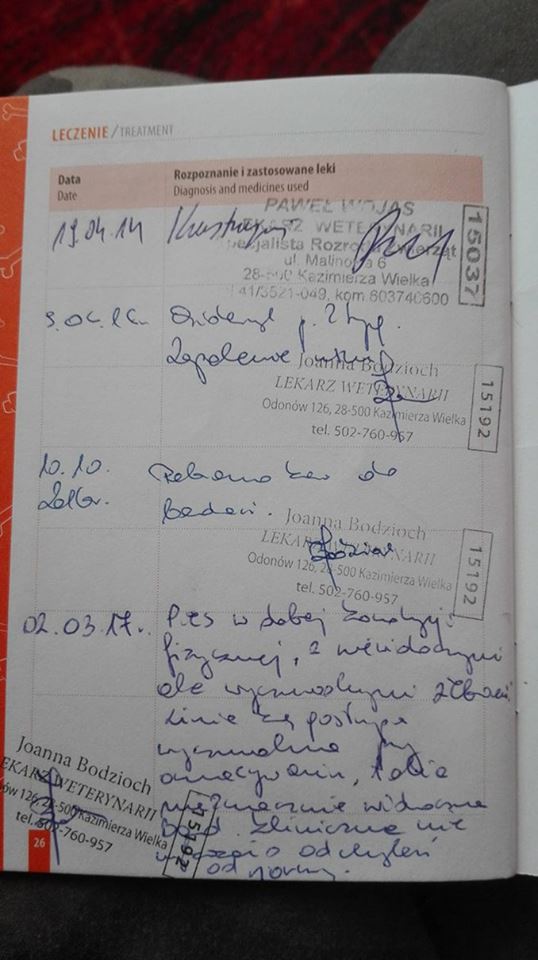 LECZENIE / TREATMENT
Data
Date
Rozpoznanie i zastosowane leki
Diagnosis and medicines used
19.04.14
PAWEŁ WOJAS
LEKARZ WETERYNARII
Specjalista Rozrodu Zwierząt
ul. Malinowa 6
28-500 Kazimierza Wielka
41/3521-049, kom. 603740600
15037
Zapalenie
Joanna Bodzioch
LEKARZ WETERYNARII
Odonów 126, 28-500 Kazimierza Wielka
tel. 502-760-957
15192
10.10.
2016r.
Pobrano krew do
badań.
Joanna Bodzioch
LEKARZ WETERYNARII
Odonów 126, 28-500 Kazimierza Wielka
tel. 502-760-957
15192
02.03.17r.
Pies w dobrej kondycji
fizycznej, z niewidocznymi
ale wyczuwalnymi żebrami
Linia
wyczuwalne przy
omacywaniu, talia
nieznacznie widoczna
Bad. kliniczne nie
wykazało odchyleń
od normy.
Joanna Bodzioch
LEKARZ WETERYNARII
Odonów 126, 28-500 Kazimierza Wielka
tel. 502-760-957
15192
26